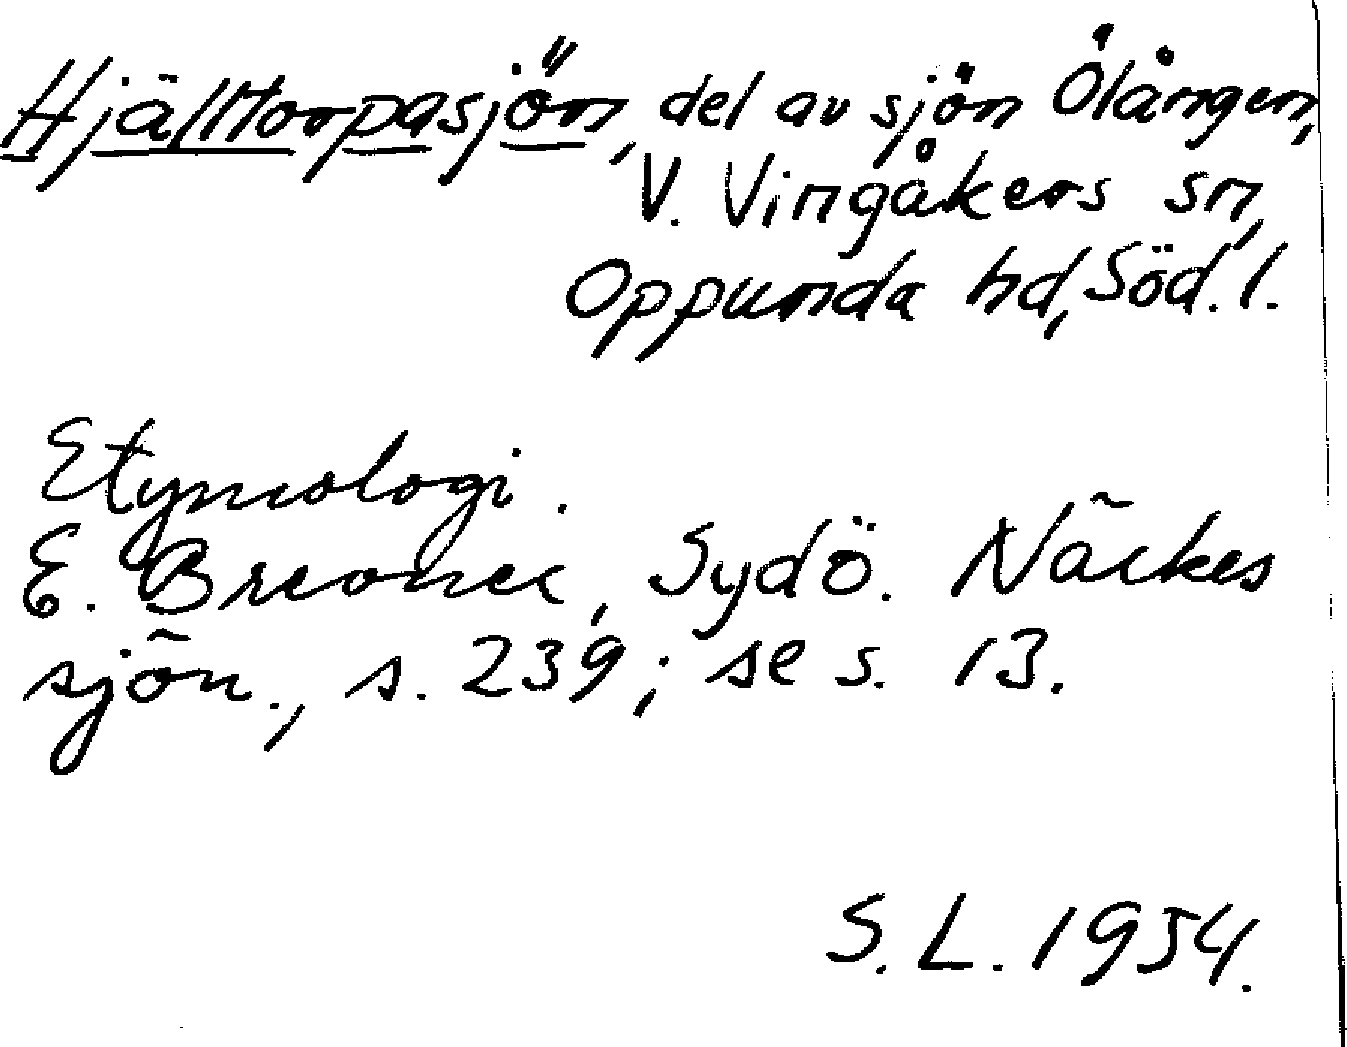 Hjälltorpasjön, del av sjön Ölången,
V. Vingåkers sn,
Oppunda hd, Söd. l.
Etymologi.
E. Brevner, Sydö. Närkes
sjön., s. 239; se s. 13.
S. L. 1954.